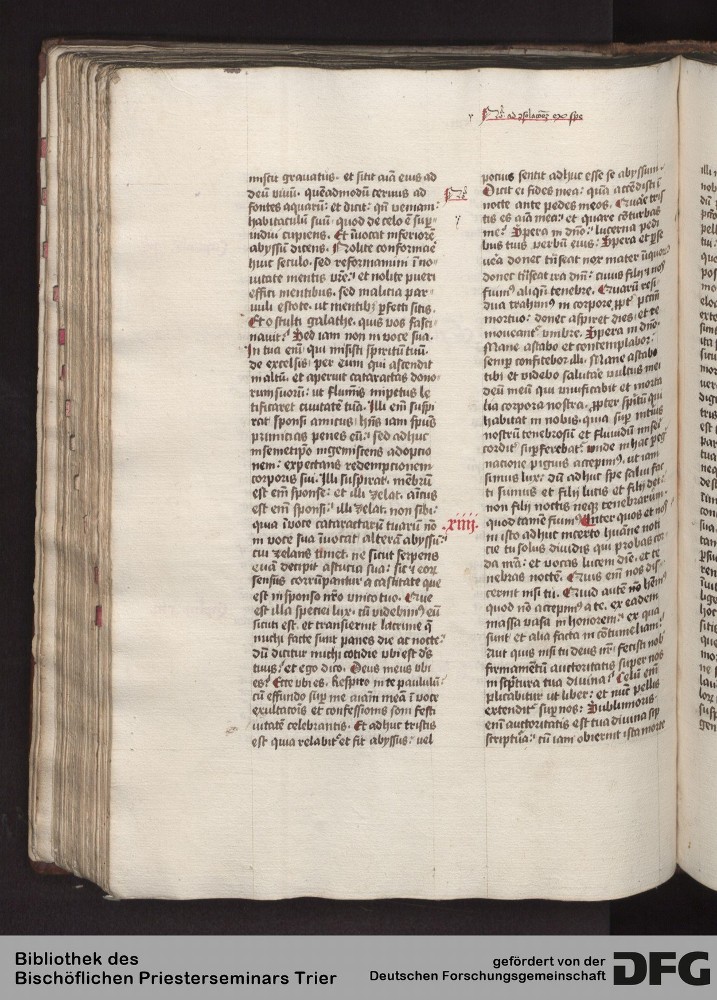 miscit grauatus. et sitit aīa eius ad
deū viuū. quēadmodū ceruus ad
fontes aquarū: et dicit: qn̄ veniam:
habitaculū suū. quod de celo ē sup̄
indui cupiens. Et īuocat inferiorē
abyssū dicens. Nolite conformari
huic seculo. sed reformamini ī no
uitate mentis vr̄e: et nolite pueri
effici mentibus. sed malicia par
uuli estote. ut mentib; p̄fecti sitis.
Et o stulti galathe. quis vos fasci
nauit: Sed iam non in voce sua.
In tua em̄ qui misisti spiritū tuū.
de excelsis: per eum qui ascendit
in altū. et aperuit cataractas dono
rum suorū: ut flumīs impetus le
tificaret ciuitatē tuā. Illi em̄ suspi
rat sponsi amicus: hn̄s iam sp̄us
primicias penes eū: sed adhuc
in semetip̄o ingemiscens adoptio
nem: expectans redemptionem
corporis sui. Illi suspirat. mēbrū
est em̄ sponse: et illi zelat. amicus
est em̄ sponsi: illi zelat. non sibi:
quia ī voce cataractarū tuarū nō
in voce sua īuocat alterā abyssū:
cui zelans timet. ne sicut serpens
euā decipit astucia sua: sic et eorū
sensus corrūpantur a castitate que
est in sponso nr̄o vnico tuo. Que
est illa speciei lux. cū videbimus eū
sicuti est. et transierint lacrime q̄
michi facte sunt panes die ac nocte:
dū dicitur michi cotidie vbi est ds̄
tuus: et ego dico. Deus meus vbi
es: Ecce vbi es. Respiro in te paululū:
cū effundo sup̄ me aīam meā ī voce
exultacōis et confessionis soni festi
uitatē celebrantis. Et adhuc tristis
est quia relabit et fit abyssus: vel
pocius sentit adhuc esse se abyssum.
Dicit ei fides mea: quā accēdisti ī
nocte ante pedes meos. Quare tris
tis es aīa mea: et quare cōturbas
me: Spera in dn̄o: lucerna pedi
bus tuis verbū eius: Spera et p̄se
uera donec trāseat nox mater iniquorū
donec trāseat ira dn̄i: cuius filij et nos
fuimus aliqn̄ tenebre. Quarū resi
dua trahimus in corpore ppt̄ pctm̄
mortuo: donec aspiret dies. et re
moueant vmbre. Spera in dn̄o.
Mane astabo et contemplabor:
semp̄ confitebor illi. Mane astabo
tibi et videbo salutare vultus mei
deū meū qui viuificabit et morta
lia corpora nostra. propter spiritū qui
habitat in nobis. quia sup̄ intius
nostrū tenebrosū et fluuidū miseri
cordit̄ sup̄ferebat. unde in hac pegri
nacione pignus accepimus. ut iam
simus lux: dū adhuc spe salui fac
ti sumus et filij lucis et filij dei:
non filij noctis neqz tenebrarum.
quod tamē fuimus. Inter quos et nos
xiiij.
in isto adhuc incerto hūane noti
cie tu solus diuidis qui probas cor
da nr̄a: et vocas lucem diē. et te
nebras noctē. Quis em̄ nos dis
cernit nisi tu. Quid autē nō hēmus
quod nō accepimus a te. ex eadem
massa vasa in honorem: ex qua
sunt et alia facta in cōtumeliam:
Aut quis nisi tu deus nr̄: fecisti nob
firmamētū auctoritatis super nos
in sc̄ptura tua diuina: Celū em̄
plicabitur ut liber: et nūc pellis
extendit̄ sup̄ nos: Sublimioris
em̄ auctoritatis est tua diuina
scriptura: cū iam obierint ista morte
Bibliothek des
Bischöflichen Priesterseminars Trier
gefördert von der
Deutschen Forschungsgemeinschaft
DFG